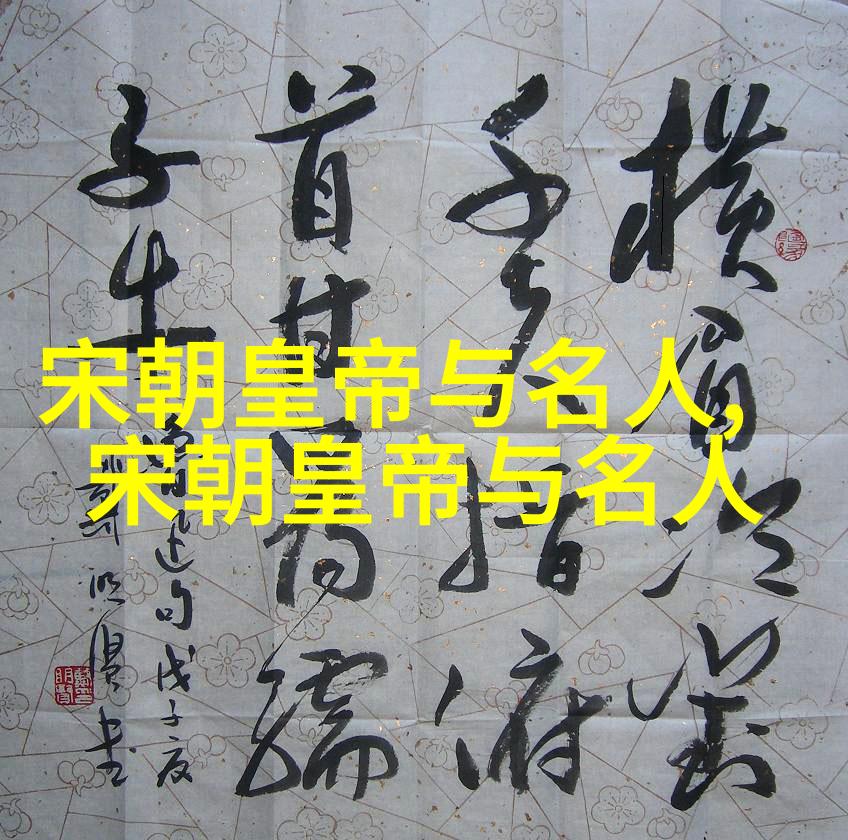 宋朝皇帝与名人,
宋朝皇帝与名人
横眉冷對
千夫指俯
首甘為孺
子牛
魯迅句戊子夏